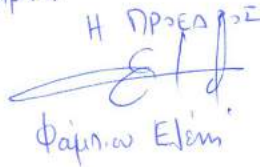 Η ΠΡΟΕΔΡΟΣ
Φάμπιου Ελένη